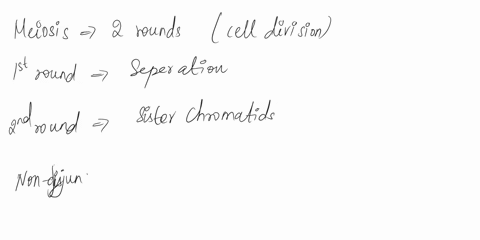 Meiosis => 2 rounds (cell division)
1st round => Seperation
2nd round => Sister Chromatids
Non-disjun